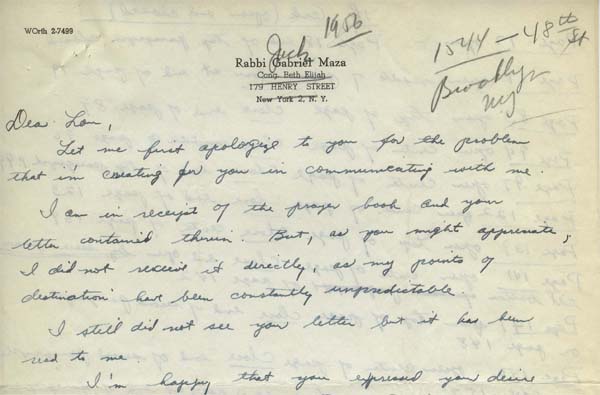 WOrth 2-7499
1956
1544 - 48th St
Brooklyn
NY
Jack
Rabbi Gabriel Maza
Cong. Beth Elijah
179 HENRY STREET
New York 2, N. Y.
Dear Lou,
Let me first apologize to you for the problem
that i'm creating for you in communicating with me.
I am in receipt of the prayer book and your
letter contained therein. But, as you might appreciate,
I did not receive it directly, as my points of
destination have been constantly unpredictable.
I still did not see your letter but it has been
read to me.
I'm happy that you expressed your desire